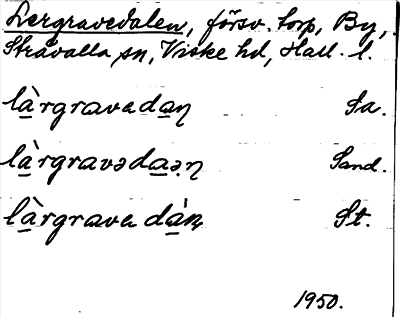 Lergravedalen, försv. torp, By,
Stråvalla sn, Viske hd, Hall. l.
là̱rgravada̱ɳ Sa.
là̱rgravəda̱əɳ Sand.
là̱rgravadà̱ɳ St.
1950.